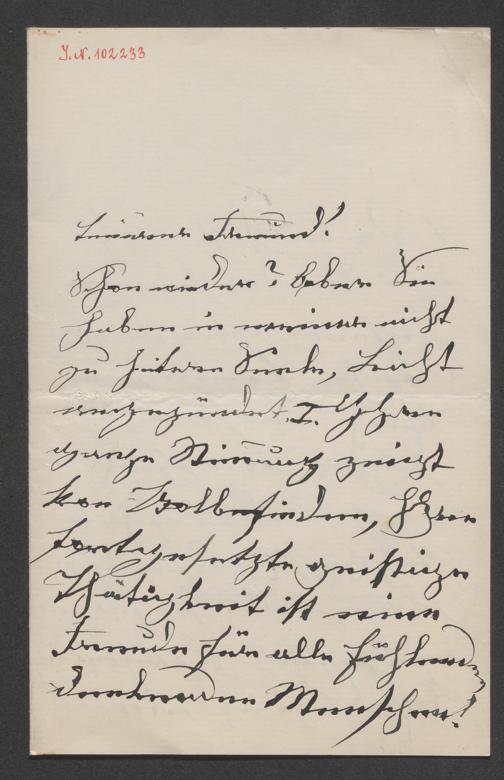 J.N. 102233
Teurer Freund!
Schon wieder? Lieber Sie
haben in meiner nicht
zu heitern Seele, Leicht
angezündet. I. Ihre
ganze Stimmung zeigt
von Wolbefinden, Ihre
fortgesetzte geistige
Thätigkeit ist eine
Freude für alle fühlend
denkenden Menschen!